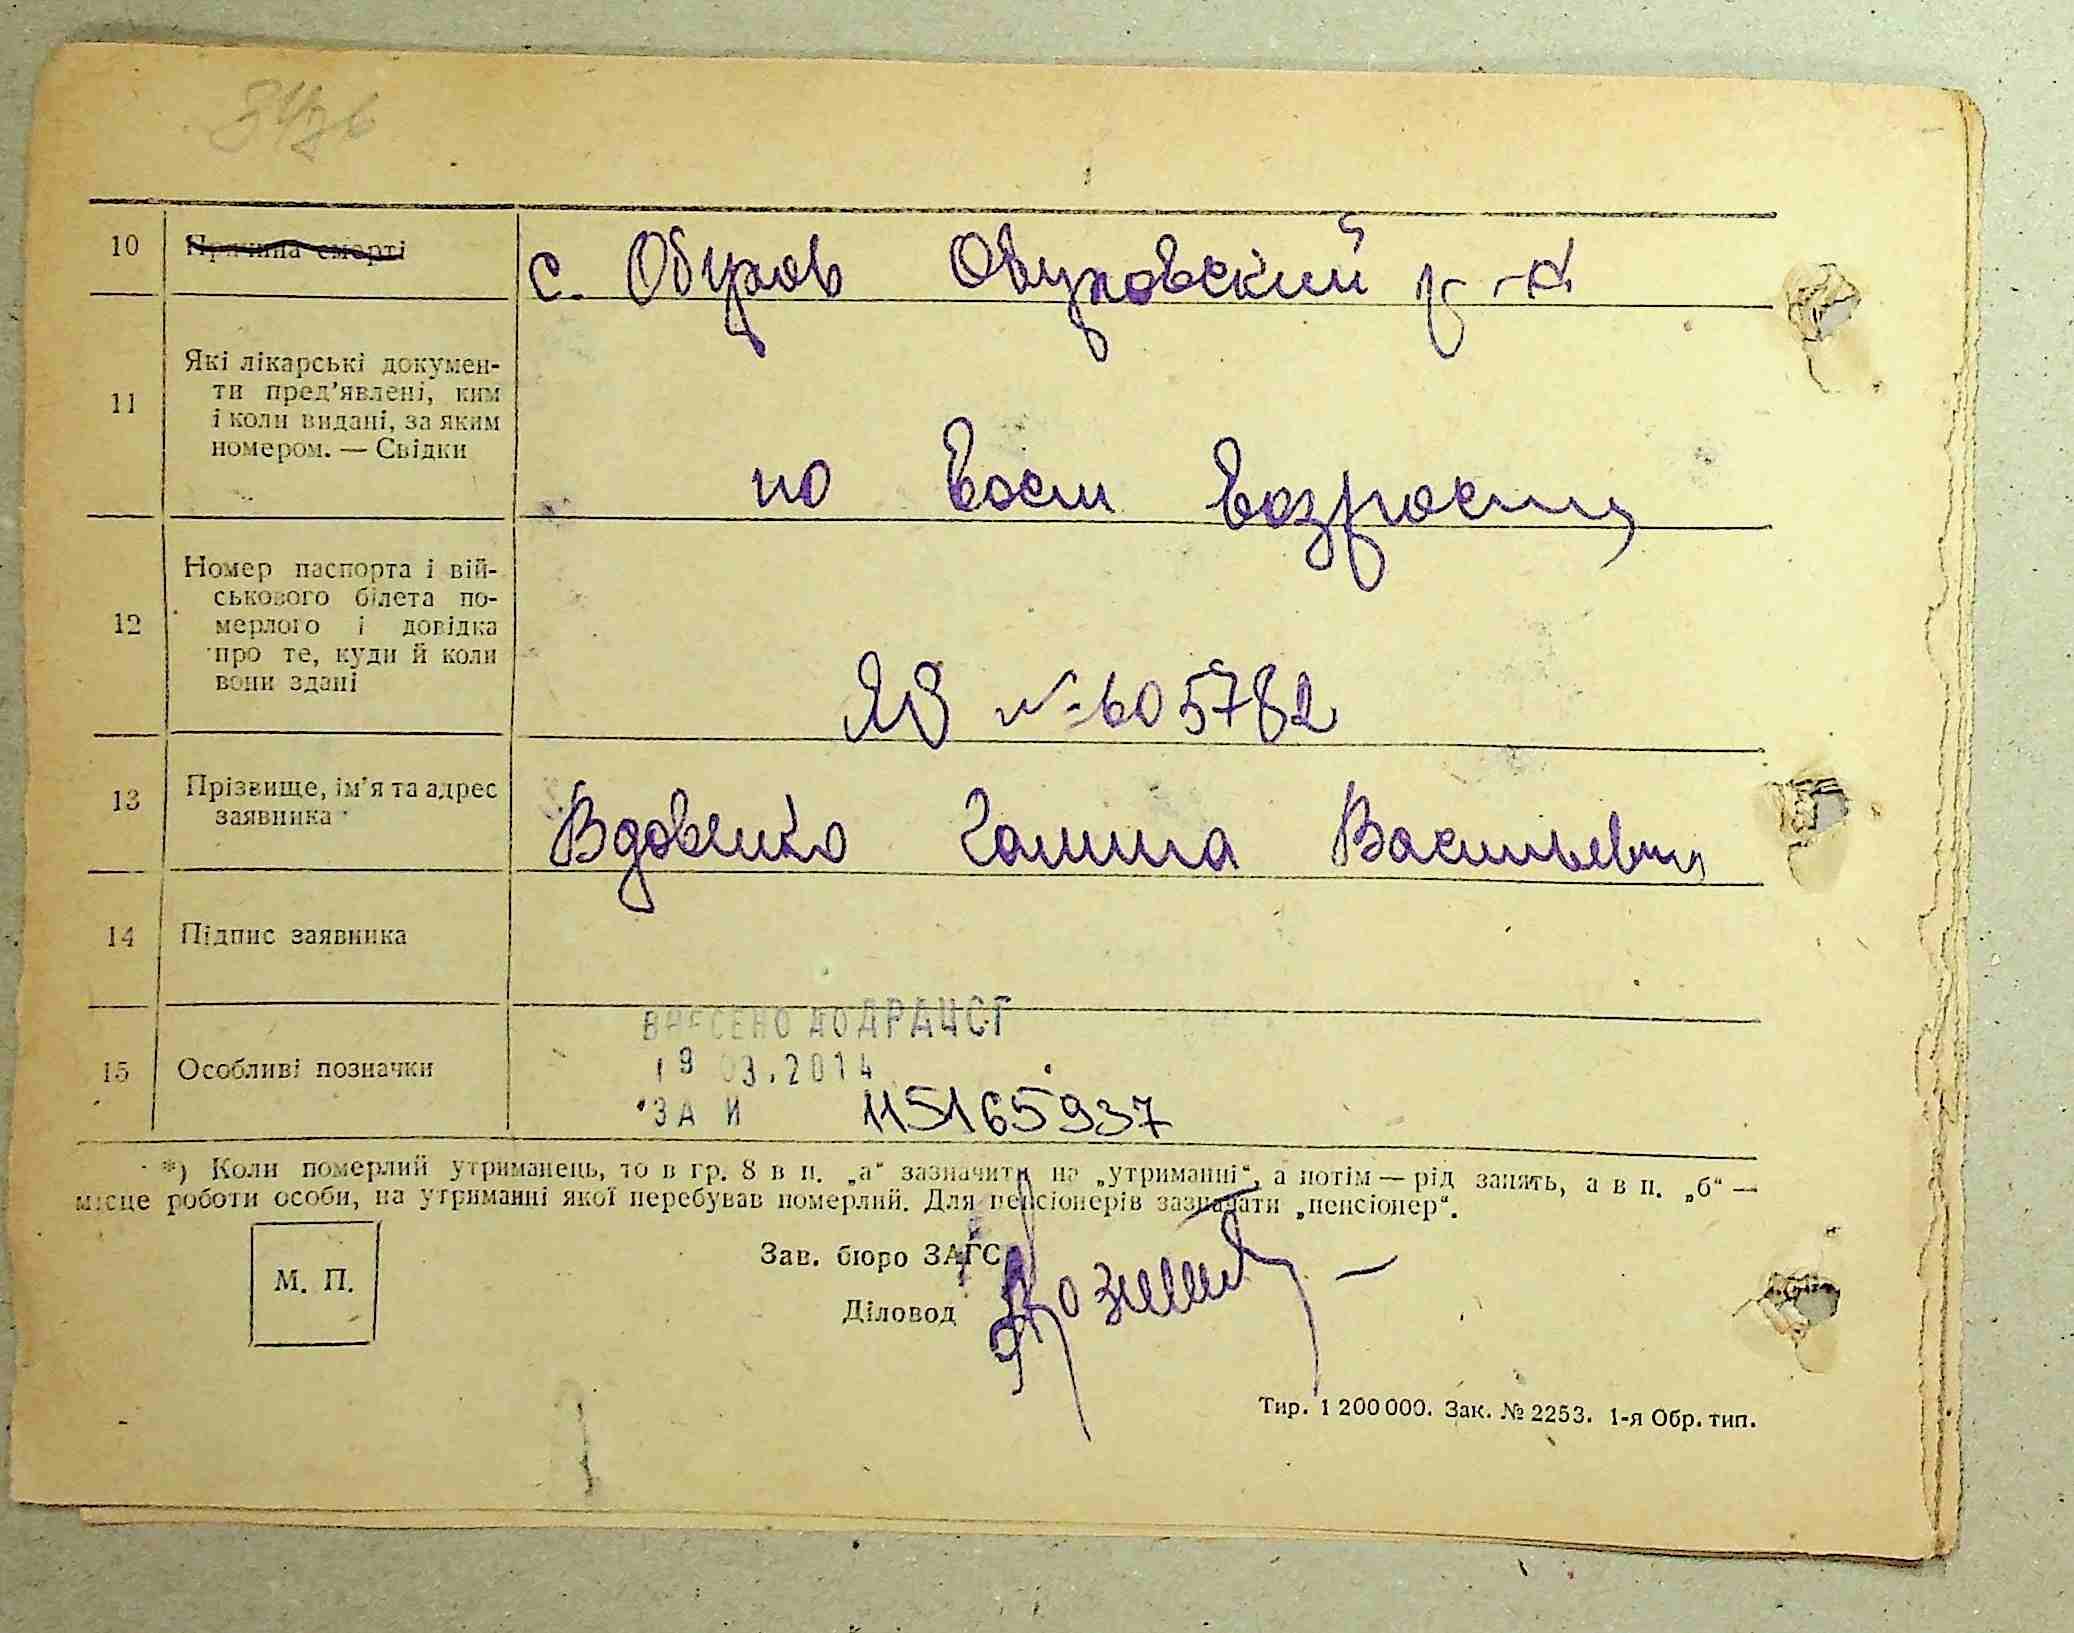 10 Причина смерті с. Обухов Обуховский р-н
11 Які лікарські докумен-
ти пред'явлені, ким
і коли видані, за яким
номером. — Свідки
по восст возрасту
12 Номер паспорта і вій-
ськового білета по-
мерлого і довідка
про те, куди й коли
вони здані
ЯВ № 605782
13 Прізвище, ім'я та адрес
заявника
Вдовенко Галина Васильевна
14 Підпис заявника
15 Особливі позначки
ВНЕСЕНО ДО ДРАЦСГ
19 03.2014
ЗА № 115165937
*) Коли померлий утриманець, то в гр. 8 в п. „а“ зазначити на „утриманні“, а потім — рід занять, а в п. „б“ —
місце роботи особи, на утриманні якої перебував померлий. Для пенсіонерів зазначати „пенсіонер“.
М. П.
Зав. бюро ЗАГС
Діловод
Тир. 1 200 000. Зак. № 2253. 1-я Обр. тип.